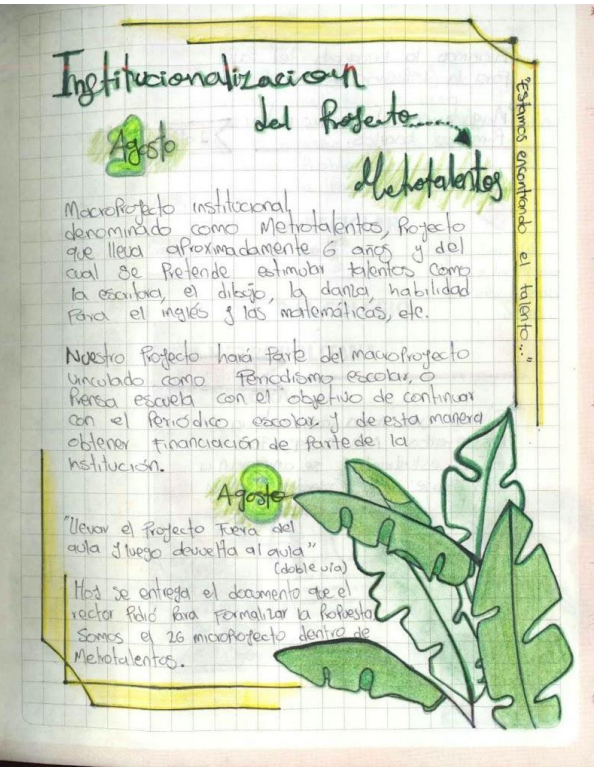 Institucionalizacion
del Proyecto......
Metrotalentos
1
Agosto
MacroProyecto institucional,
denominado como Metrotalentos, Proyecto
que lleva aproximadamente 6 años y del
cual se Pretende estimular talentos como
la escritura, el dibujo, la danza, habilidad
Para el inglés y las matemáticas, etc.
Nuestro Proyecto hará Parte del macroProyecto
vinculado como Periodismo escolar, o
Prensa escuela con el objetivo de continuar
con el Periódico escolar y de esta manera
obtener Financiación de Parte de la
institución.
Agosto
"llevar el Proyecto Fuera del
aula y luego devuelta al aula"
(doble vía)
Hoy se entrega el documento que el
rector Pidió Para Formalizar la ProPuesta
Somos el 26 microProyecto dentro de
Metrotalentos.
"Estamos encontrando el talento..."